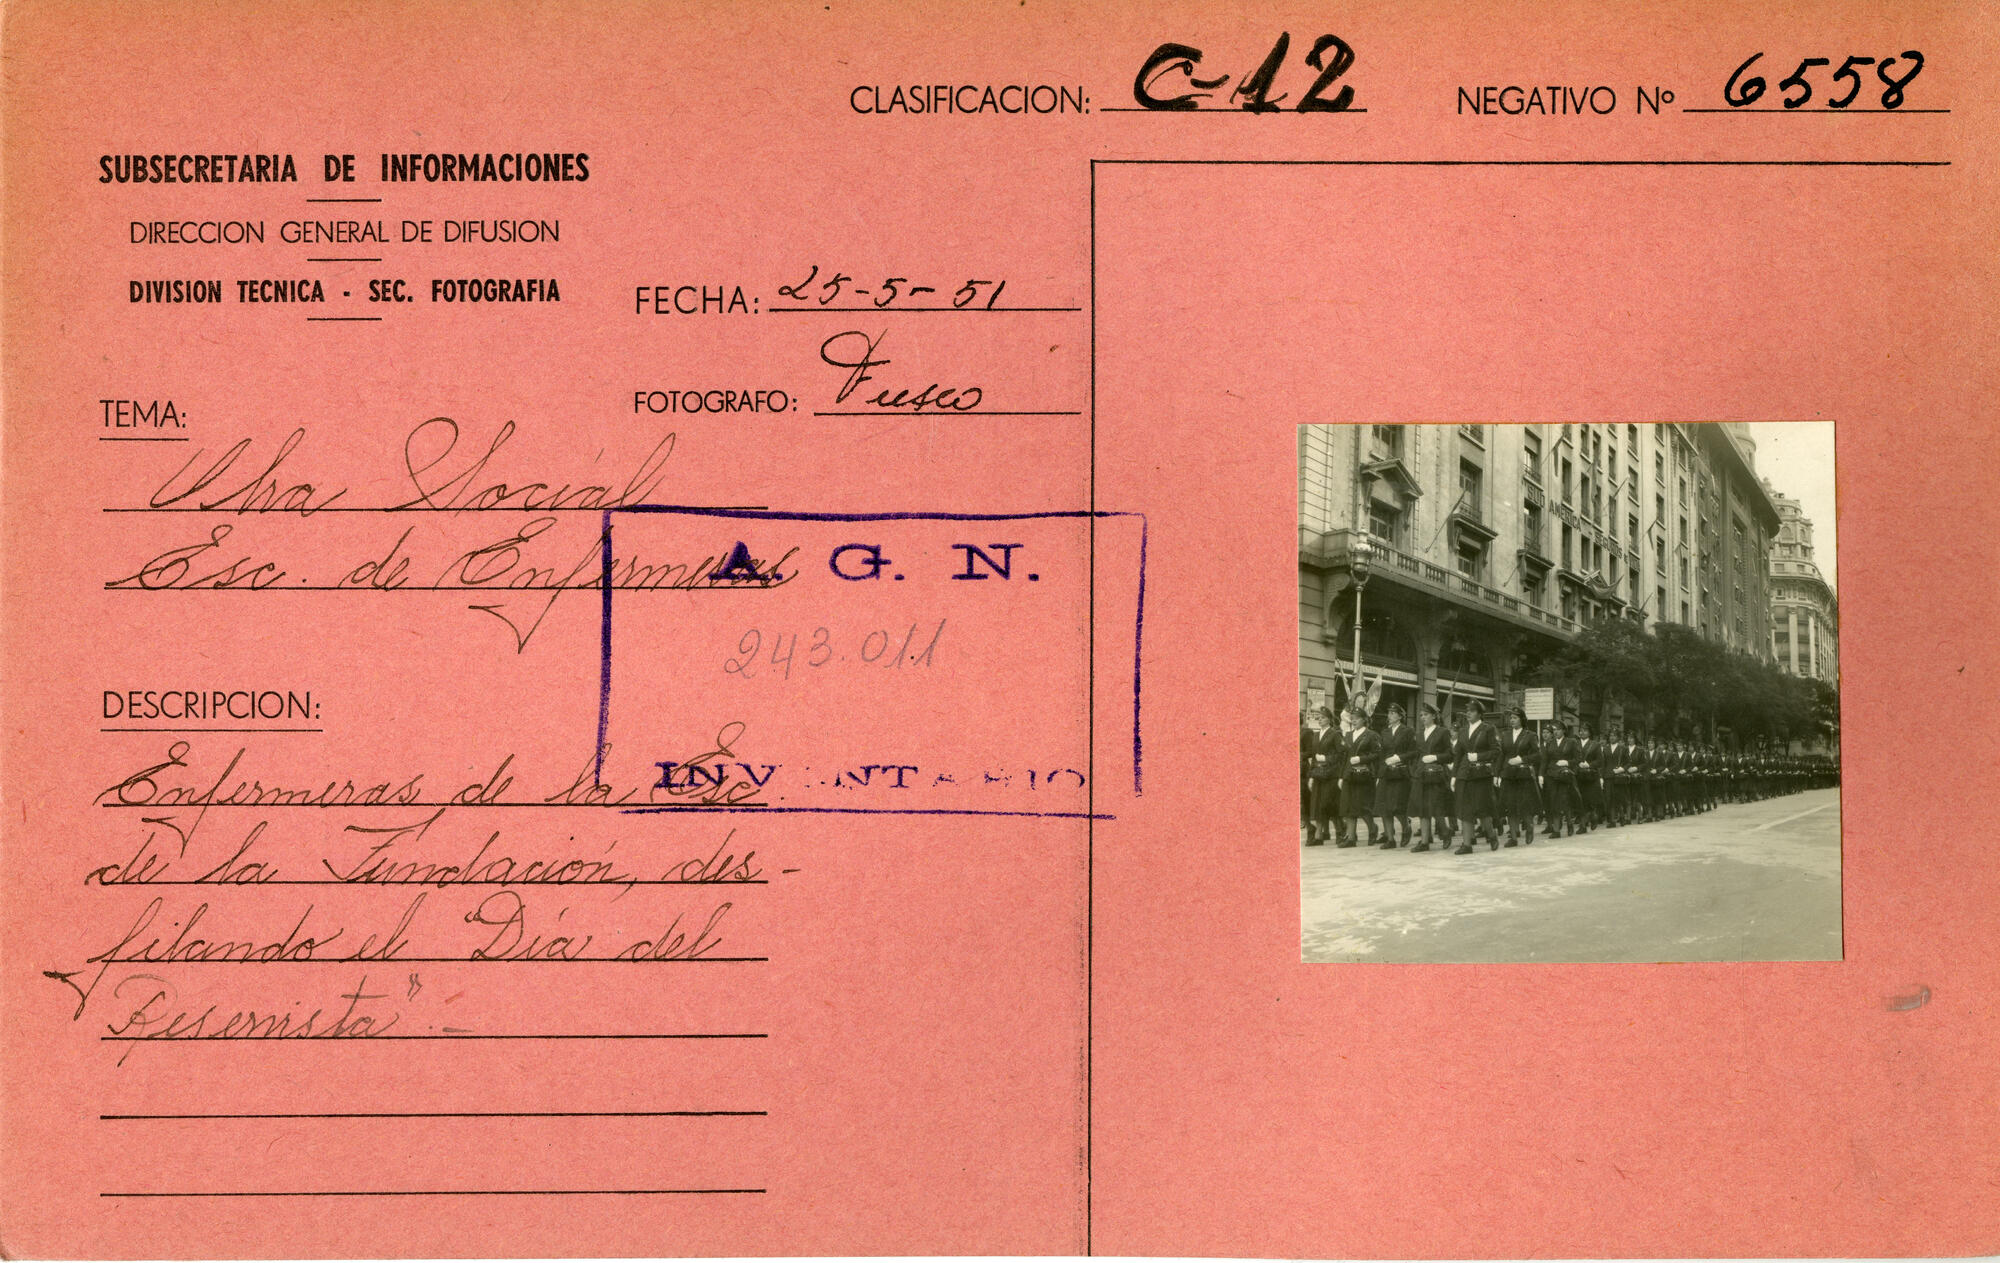 CLASIFICACION: C-12
NEGATIVO Nº 6558
SUBSECRETARIA DE INFORMACIONES
DIRECCION GENERAL DE DIFUSION
DIVISION TECNICA - SEC. FOTOGRAFIA
FECHA: 25-5-51
FOTOGRAFO: Fusco
TEMA:
Obra Social
Esc. de Enfermeras
A. G. N.
243.011
INVENTARIO
DESCRIPCION:
Enfermeras de la Esc.
de la Fundación, des-
filando el "Día del
Reservista".-
SUD AMERICA